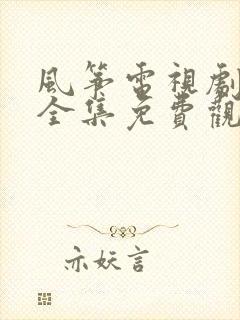 風箏電視劇
全集免費觀
亦妖言